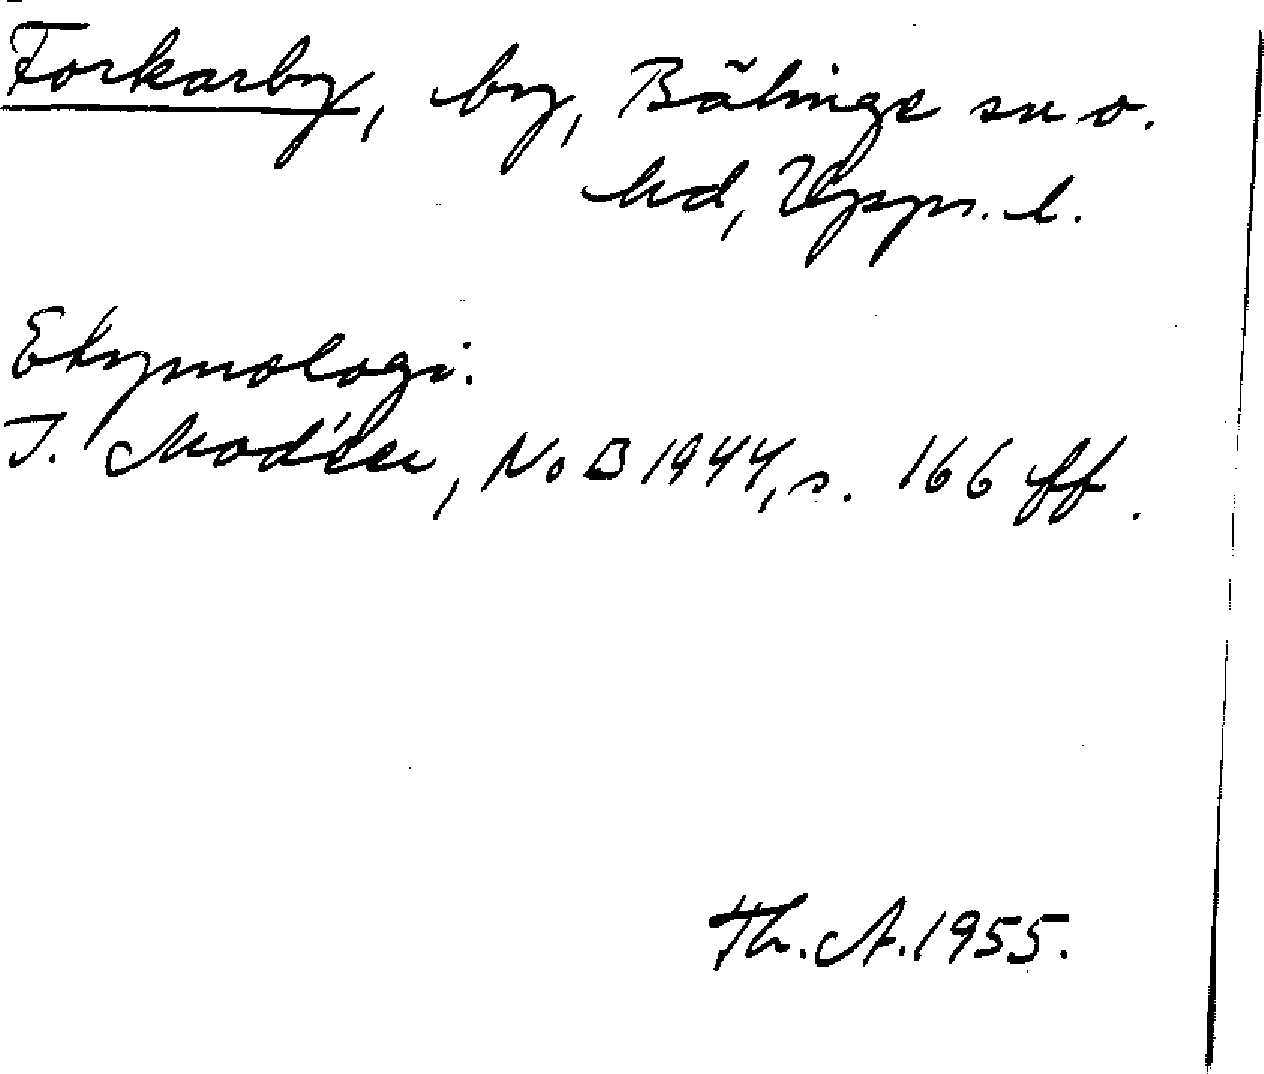 Forkarby, by, Bälinge sn o.
hd, Upps. l.
Etymologi.
I. Modéer, NoB 1944, s. 166 ff.
Th. A. 1955.